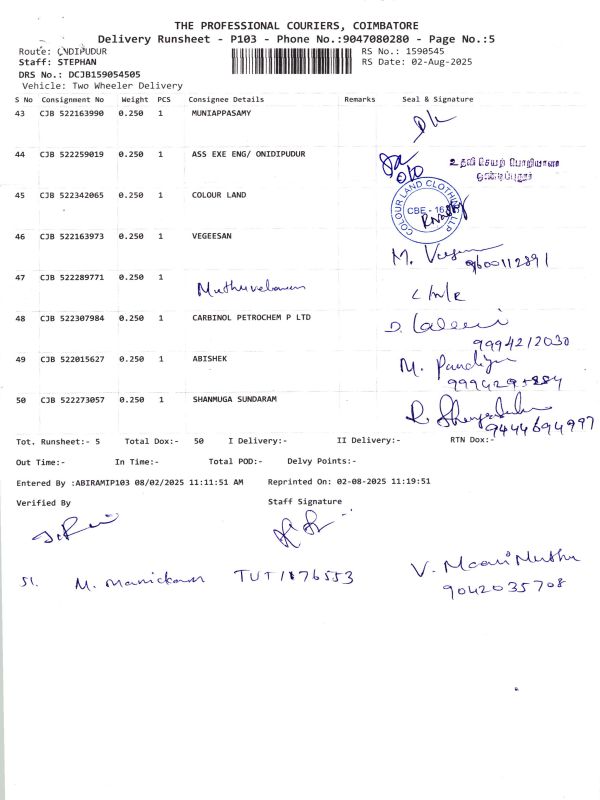 THE PROFESSIONAL COURIERS, COIMBATORE
Delivery Runsheet - P103 - Phone No.:9047080280 - Page No.:5
Route: ONDIPUDUR RS No.: 1590545
Staff: STEPHAN RS Date: 02-Aug-2025
DRS No.: DCJB159054505
Vehicle: Two Wheeler Delivery
S No Consignment No Weight PCS Consignee Details Remarks Seal & Signature
43 CJB 522163990 0.250 1 MUNIAPPASAMY
44 CJB 522259019 0.250 1 ASS EXE ENG/ ONIDIPUDUR
உதவி செயற் பொறியாளர்
ஒண்டிப்புதூர்
45 CJB 522342065 0.250 1 COLOUR LAND
COLOUR LAND CLOTHING LLP
CBE - 16
46 CJB 522163973 0.250 1 VEGEESAN
9600112891
47 CJB 522289771 0.250 1
Muthuvelavan
48 CJB 522307984 0.250 1 CARBINOL PETROCHEM P LTD
9994212030
49 CJB 522015627 0.250 1 ABISHEK M. Pandiyan
50 CJB 522273057 0.250 1 SHANMUGA SUNDARAM
9444694997
Tot. Runsheet:- 5 Total Dox:- 50 I Delivery:- II Delivery:- RTN Dox:-
Out Time:- In Time:- Total POD:- Delvy Points:-
Entered By :ABIRAMIP103 08/02/2025 11:11:51 AM Reprinted On: 02-08-2025 11:19:51
Verified By Staff Signature
51. M. Manickam TUT1876553 V. Maari Muthu
9042035708